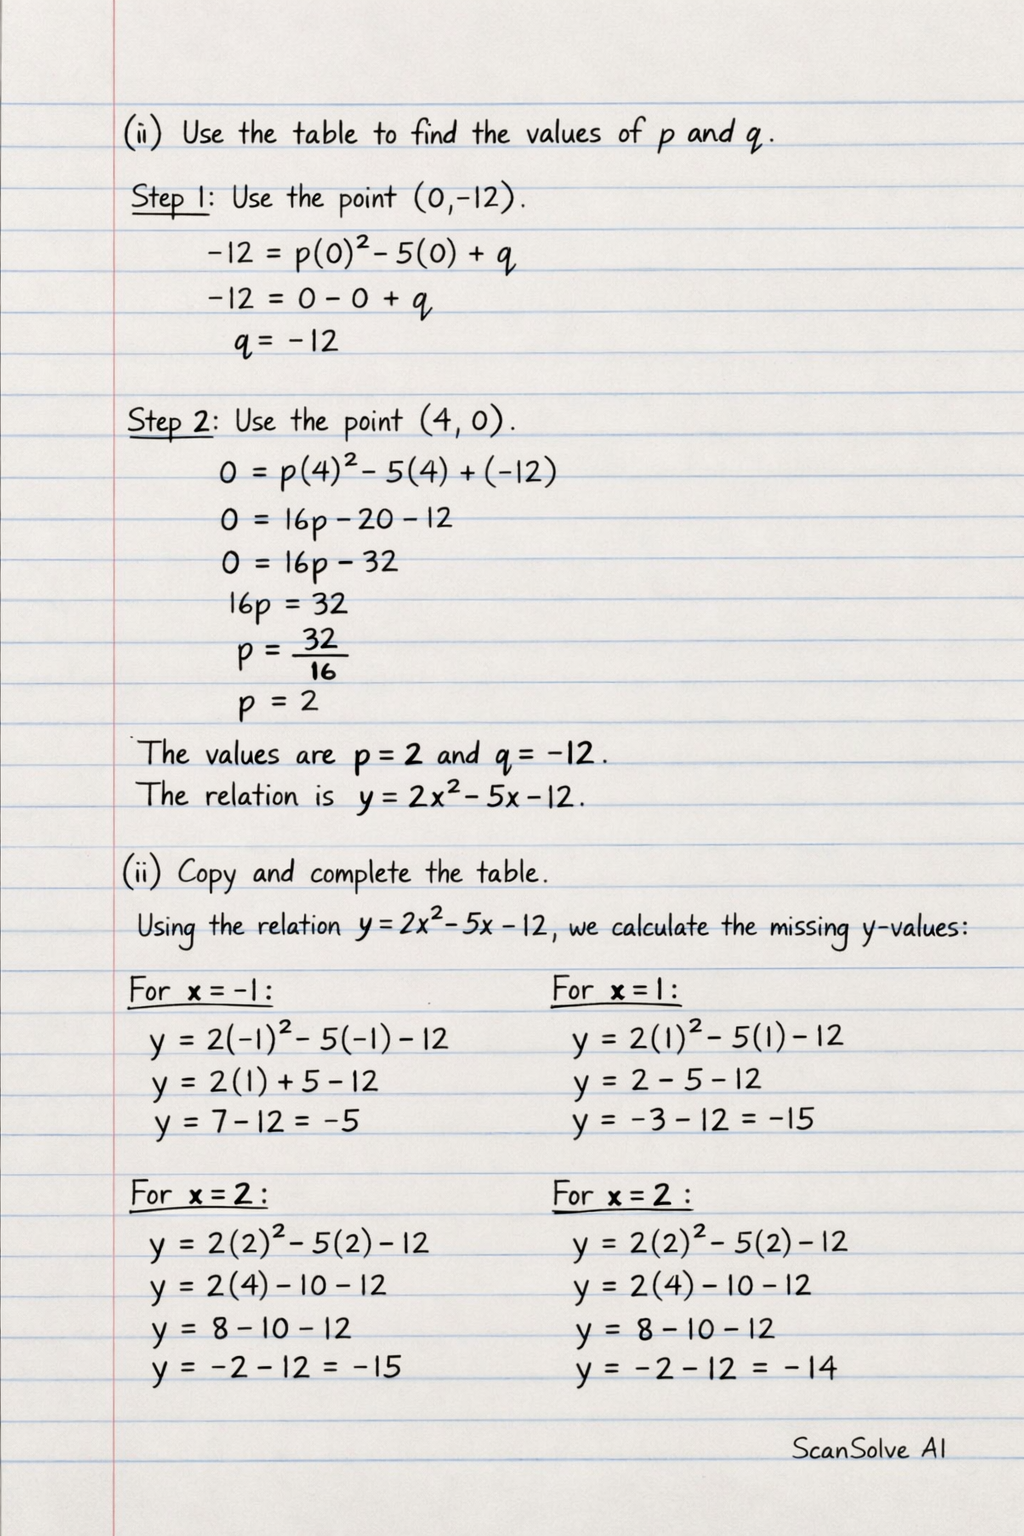 (ii) Use the table to find the values of p and q.
Step 1: Use the point (0,-12).
-12 = p(0)² - 5(0) + q
-12 = 0 - 0 + q
q = -12
Step 2: Use the point (4, 0).
0 = p(4)² - 5(4) + (-12)
0 = 16p - 20 - 12
0 = 16p - 32
16p = 32
p = 32/16
p = 2
The values are p = 2 and q = -12.
The relation is y = 2x² - 5x - 12.
(ii) Copy and complete the table.
Using the relation y = 2x² - 5x - 12, we calculate the missing y-values:
For x = -1:
y = 2(-1)² - 5(-1) - 12
y = 2(1) + 5 - 12
y = 7 - 12 = -5
For x = 1:
y = 2(1)² - 5(1) - 12
y = 2 - 5 - 12
y = -3 - 12 = -15
For x = 2:
y = 2(2)² - 5(2) - 12
y = 2(4) - 10 - 12
y = 8 - 10 - 12
y = -2 - 12 = -15
For x = 2 :
y = 2(2)² - 5(2) - 12
y = 2(4) - 10 - 12
y = 8 - 10 - 12
y = -2 - 12 = -14
ScanSolve AI